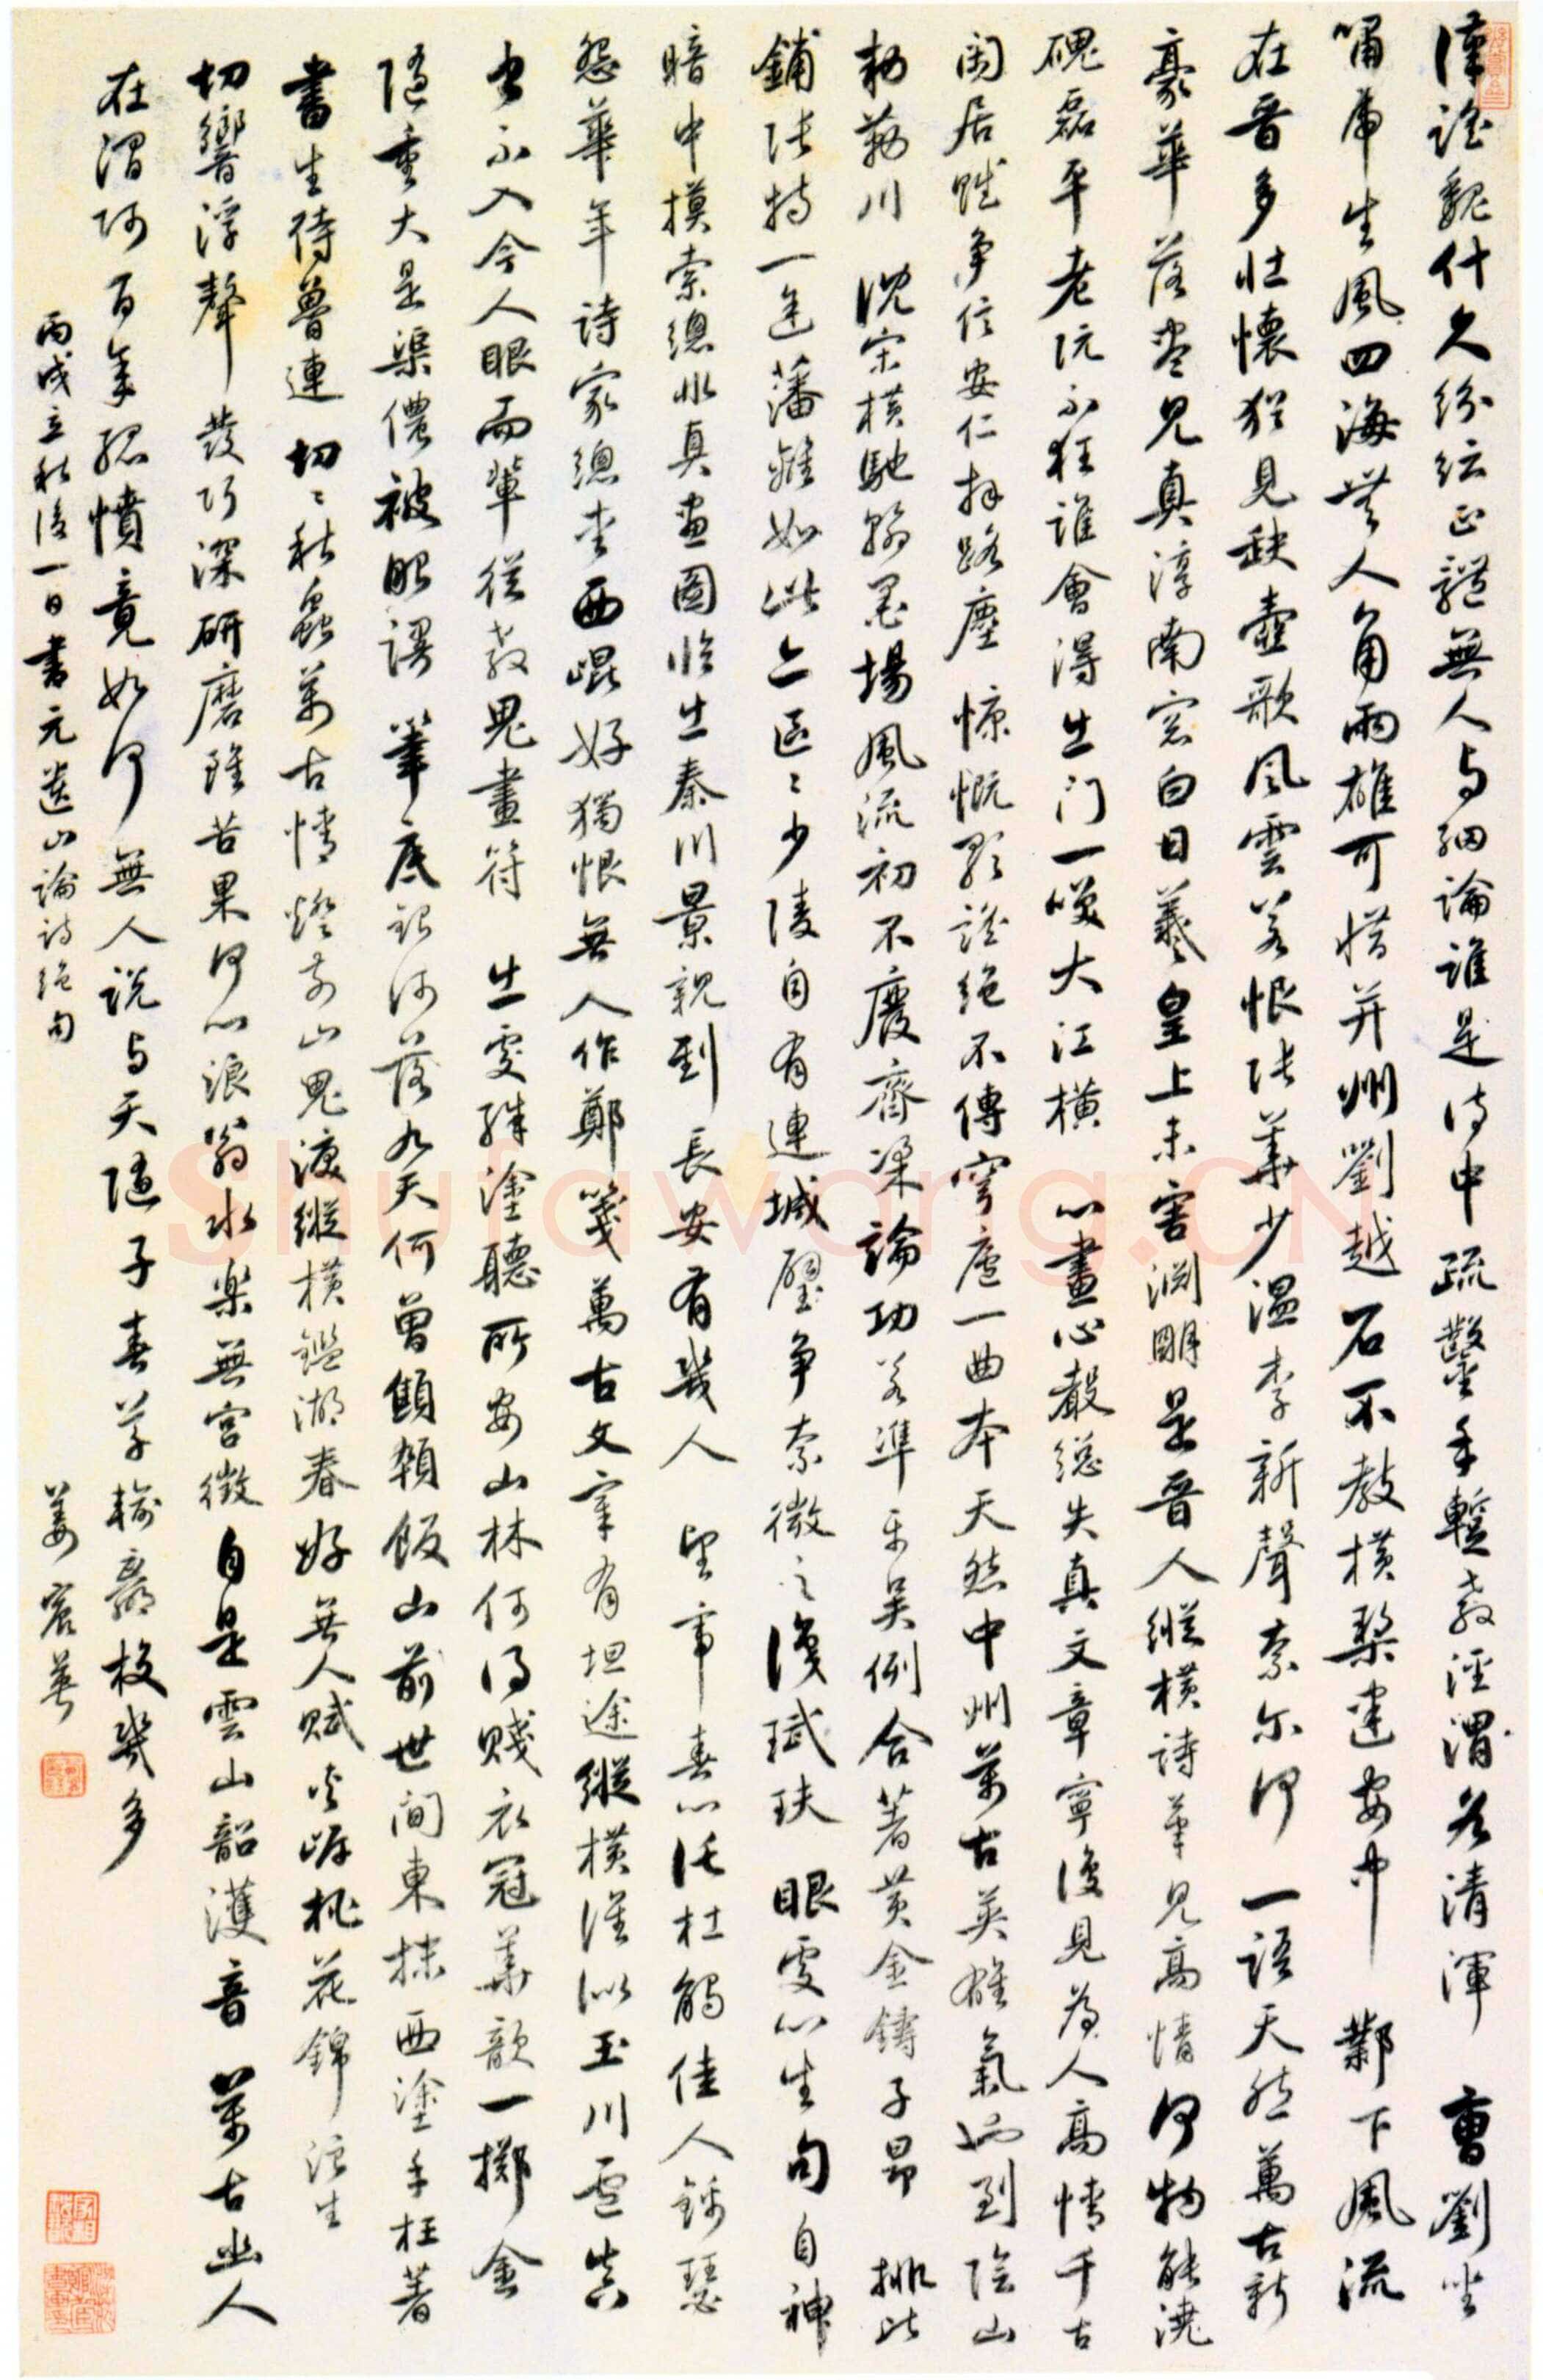 漢謠魏什久紛紜正體無人与細論誰是詩中疏鑿手暫教涇渭各清渾 曹劉坐
嘯虎生風四海無人角兩雄可惜并州劉越石不教橫槊建安中 鄴下風流
在晉多壯懷猶見缺壺歌風雲若恨張華少溫李新聲奈尔何 一語天然萬古新
豪華落盡見真淳南窓白日羲皇上未害淵明是晉人縱橫詩筆見高情何物能澆
磈磊平老阮不狂誰會得出门一嘆大江橫 心畫心聲總失真文章寧復見為人高情千古
閑居賦爭信安仁拜路塵 慷慨歌謠絕不傳穹廬一曲本天然中州萬古英雄氣也到陰山
勑勒川 沈宋橫馳翰墨場風流初不廢齊梁論功若準平吳例合著黃金鑄子昂 排比
鋪張特一途藩籬如此亦區〻少陵自有連城璧爭奈微之識珷玞 眼處心生句自神
暗中摸索總非真畫圖臨出秦川景親到長安有幾人 望帝春心託杜鵑佳人錦瑟
怨華年詩家總愛西崑好獨恨無人作鄭箋萬古文章有坦途縱橫誰似玉川盧真
書不入今人眼兒輩從教鬼畫符 出處殊塗聽所安山林何得賤衣冠華歆一擲金
隨重大是渠儂被眼謾 筆底銀河落九天何曾顦顇飯山前世間東抹西塗手枉著
書生待魯連 切〻秋蟲萬古情燈前山鬼淚縱橫鑑湖春好無人賦夾岸桃花錦浪生
切響浮聲發巧深研磨雖苦果何心浪翁水樂無宮徵自是雲山韶濩音 萬古幽人
在澗阿百年孤憤竟如何無人說与天隨子春草輸贏校幾多
丙戌立秋後一日書元遺山論詩絕句
姜宸英
Shufawang.CN